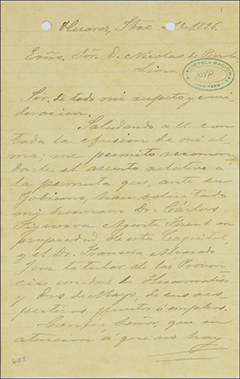 Huaraz,
1896.
Excmo. Sor. D. Nicolas de Piérola
Lima.
BIBLIOTECA NACIONAL
Sor. de todo mi respeto y consi
deracion.
Saludando a U. con
toda la efusion de mi al
ma; me permito recomen
darle el asunto relativo á
la permuta que, ante el
Gobierno, han solicitado
mi hermano Dr. Cárlos
Agente fiscal en
propiedad de esta Capital,
y el Dr. Francisco Alvarado
Juez titular de las Provin
cias unidas de Huamalíes
y Dos de Mayo, de sus res
pectivos puestos ó empleos.
Confío, Señor, que en
atencion á que no hay